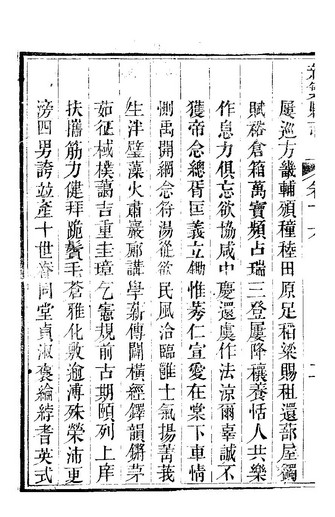 屢巡方畿輔頻種稑田原足稻粱賜租還蔀屋蠲
賦裕倉箱萬寶頻占瑞三登屢降穰養恬人共樂
作息力俱忘欲協咸中慶還虞作法涼爾辜誠不
獲帝念總胥匡義立鋤惟莠仁宣愛在棠下車情
惻禹開綱念符湯從欲民風洽臨雝士氣揚菁莪
生泮璧藻火肅巖廊講學薪傳闢橫經鐸韻鏘茅
茹征棫樸藹吉重圭璋乞憲規前古期頤列上庠
扶攜筋力健拜跪鬢毛蒼雅化敷逾溥殊榮沛更
滂四男誇並產十世睿同堂貞淑褒綸綍耆英式